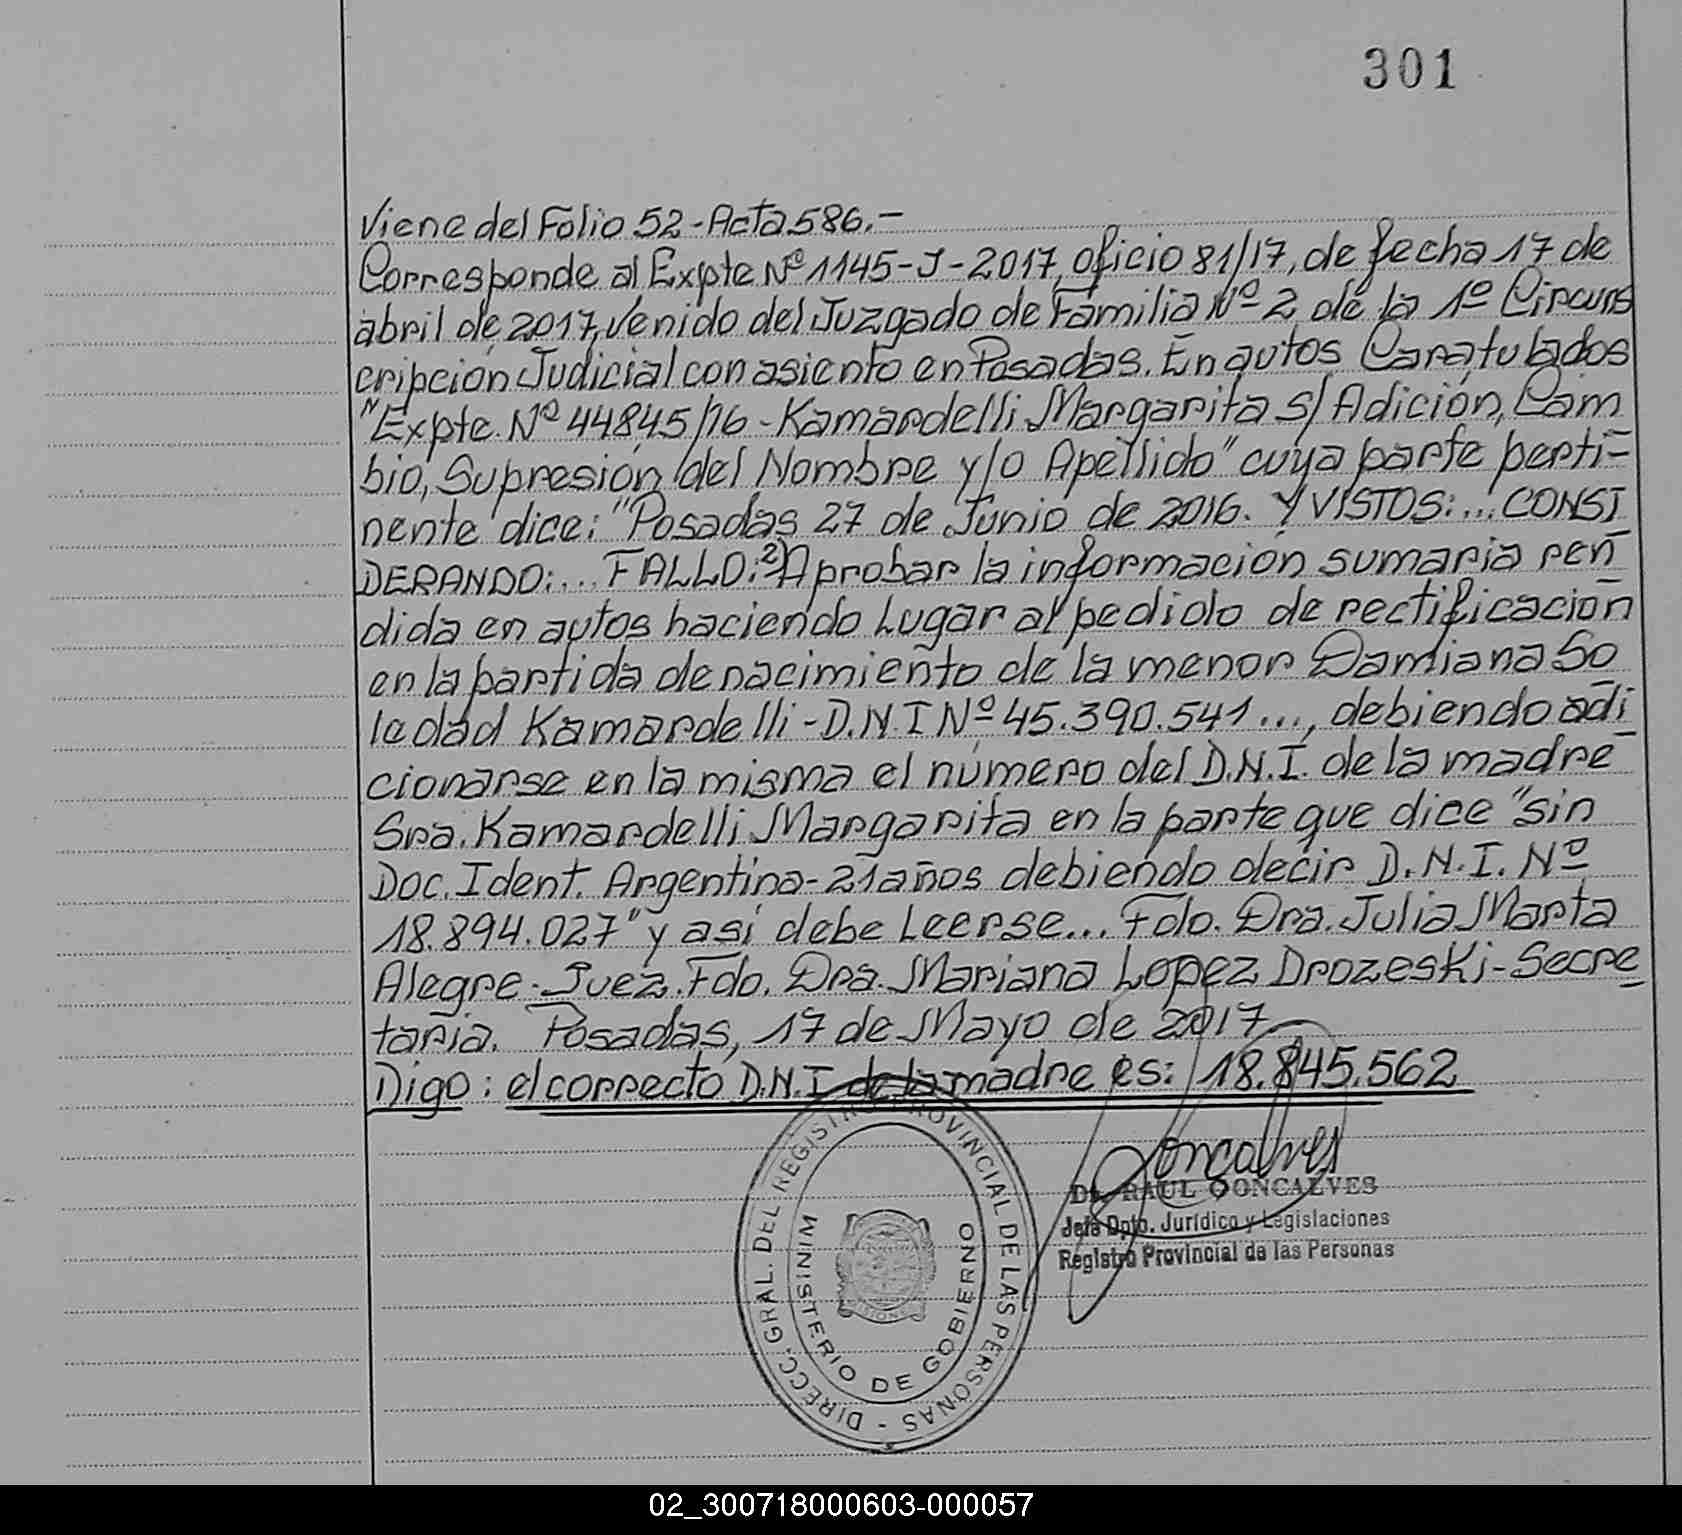 301
Viene del Folio 52-Acta 586.-
Corresponde al Expte Nº 1145-J-2017, oficio 81/17, de fecha 17 de
abril de 2017, venido del Juzgado de Familia Nº 2 de la 1º Circuns
cripción Judicial con asiento en Posadas. En autos Caratulados
"Expte. Nº 44845/16 - Kamardelli Margarita s/ Adición, Cam
bio, Supresión del Nombre y/o Apellido" cuya parte perti-
nente dice: "Posadas 27 de Junio de 2016. Y VISTOS:... CONSI
DERANDO:... FALLO: 2) Aprobar la información sumaria ren
dida en autos haciendo Lugar al pedido de rectificación
en la partida de nacimiento de la menor Damiana So
ledad Kamardelli - D.N.I Nº 45.390.541..., debiendo adi
cionarse en la misma el número del D.N.I. de la madre
Sra. Kamardelli Margarita en la parte que dice "sin
Doc. Ident. Argentina - 21 años debiendo decir D.N.I. Nº
18.894.027" y así debe Leerse... Fdo. Dra. Julia Marta
Alegre - Juez. Fdo. Dra. Mariana Lopez Drozeski - Secre
taria. Posadas, 17 de Mayo de 2017
Digo: el correcto D.N.I de la madre es: 18.845.562
Goncalves
Dr. RAUL GONCALVES
Jefe Dpto. Jurídico y Legislaciones
Registro Provincial de las Personas
DIRECC. GRAL. DEL REGISTRO PROVINCIAL DE LAS PERSONAS -
MINISTERIO DE GOBIERNO
MISIONES
02_300718000603-000057